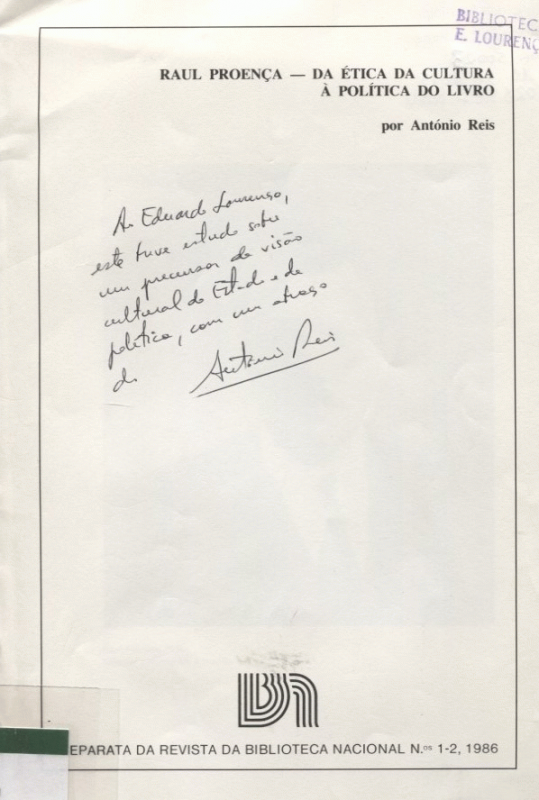 BIBLIOTEC
E. LOURENÇ
RAUL PROENÇA — DA ÉTICA DA CULTURA
À POLÍTICA DO LIVRO
por António Reis
Ao Eduardo Lourenço,
este breve estudo sobre
um precursor da visão
cultural do Estado e da
política, com um abraço
do António Reis
Bn
EPARATA DA REVISTA DA BIBLIOTECA NACIONAL N.ºˢ 1-2, 1986